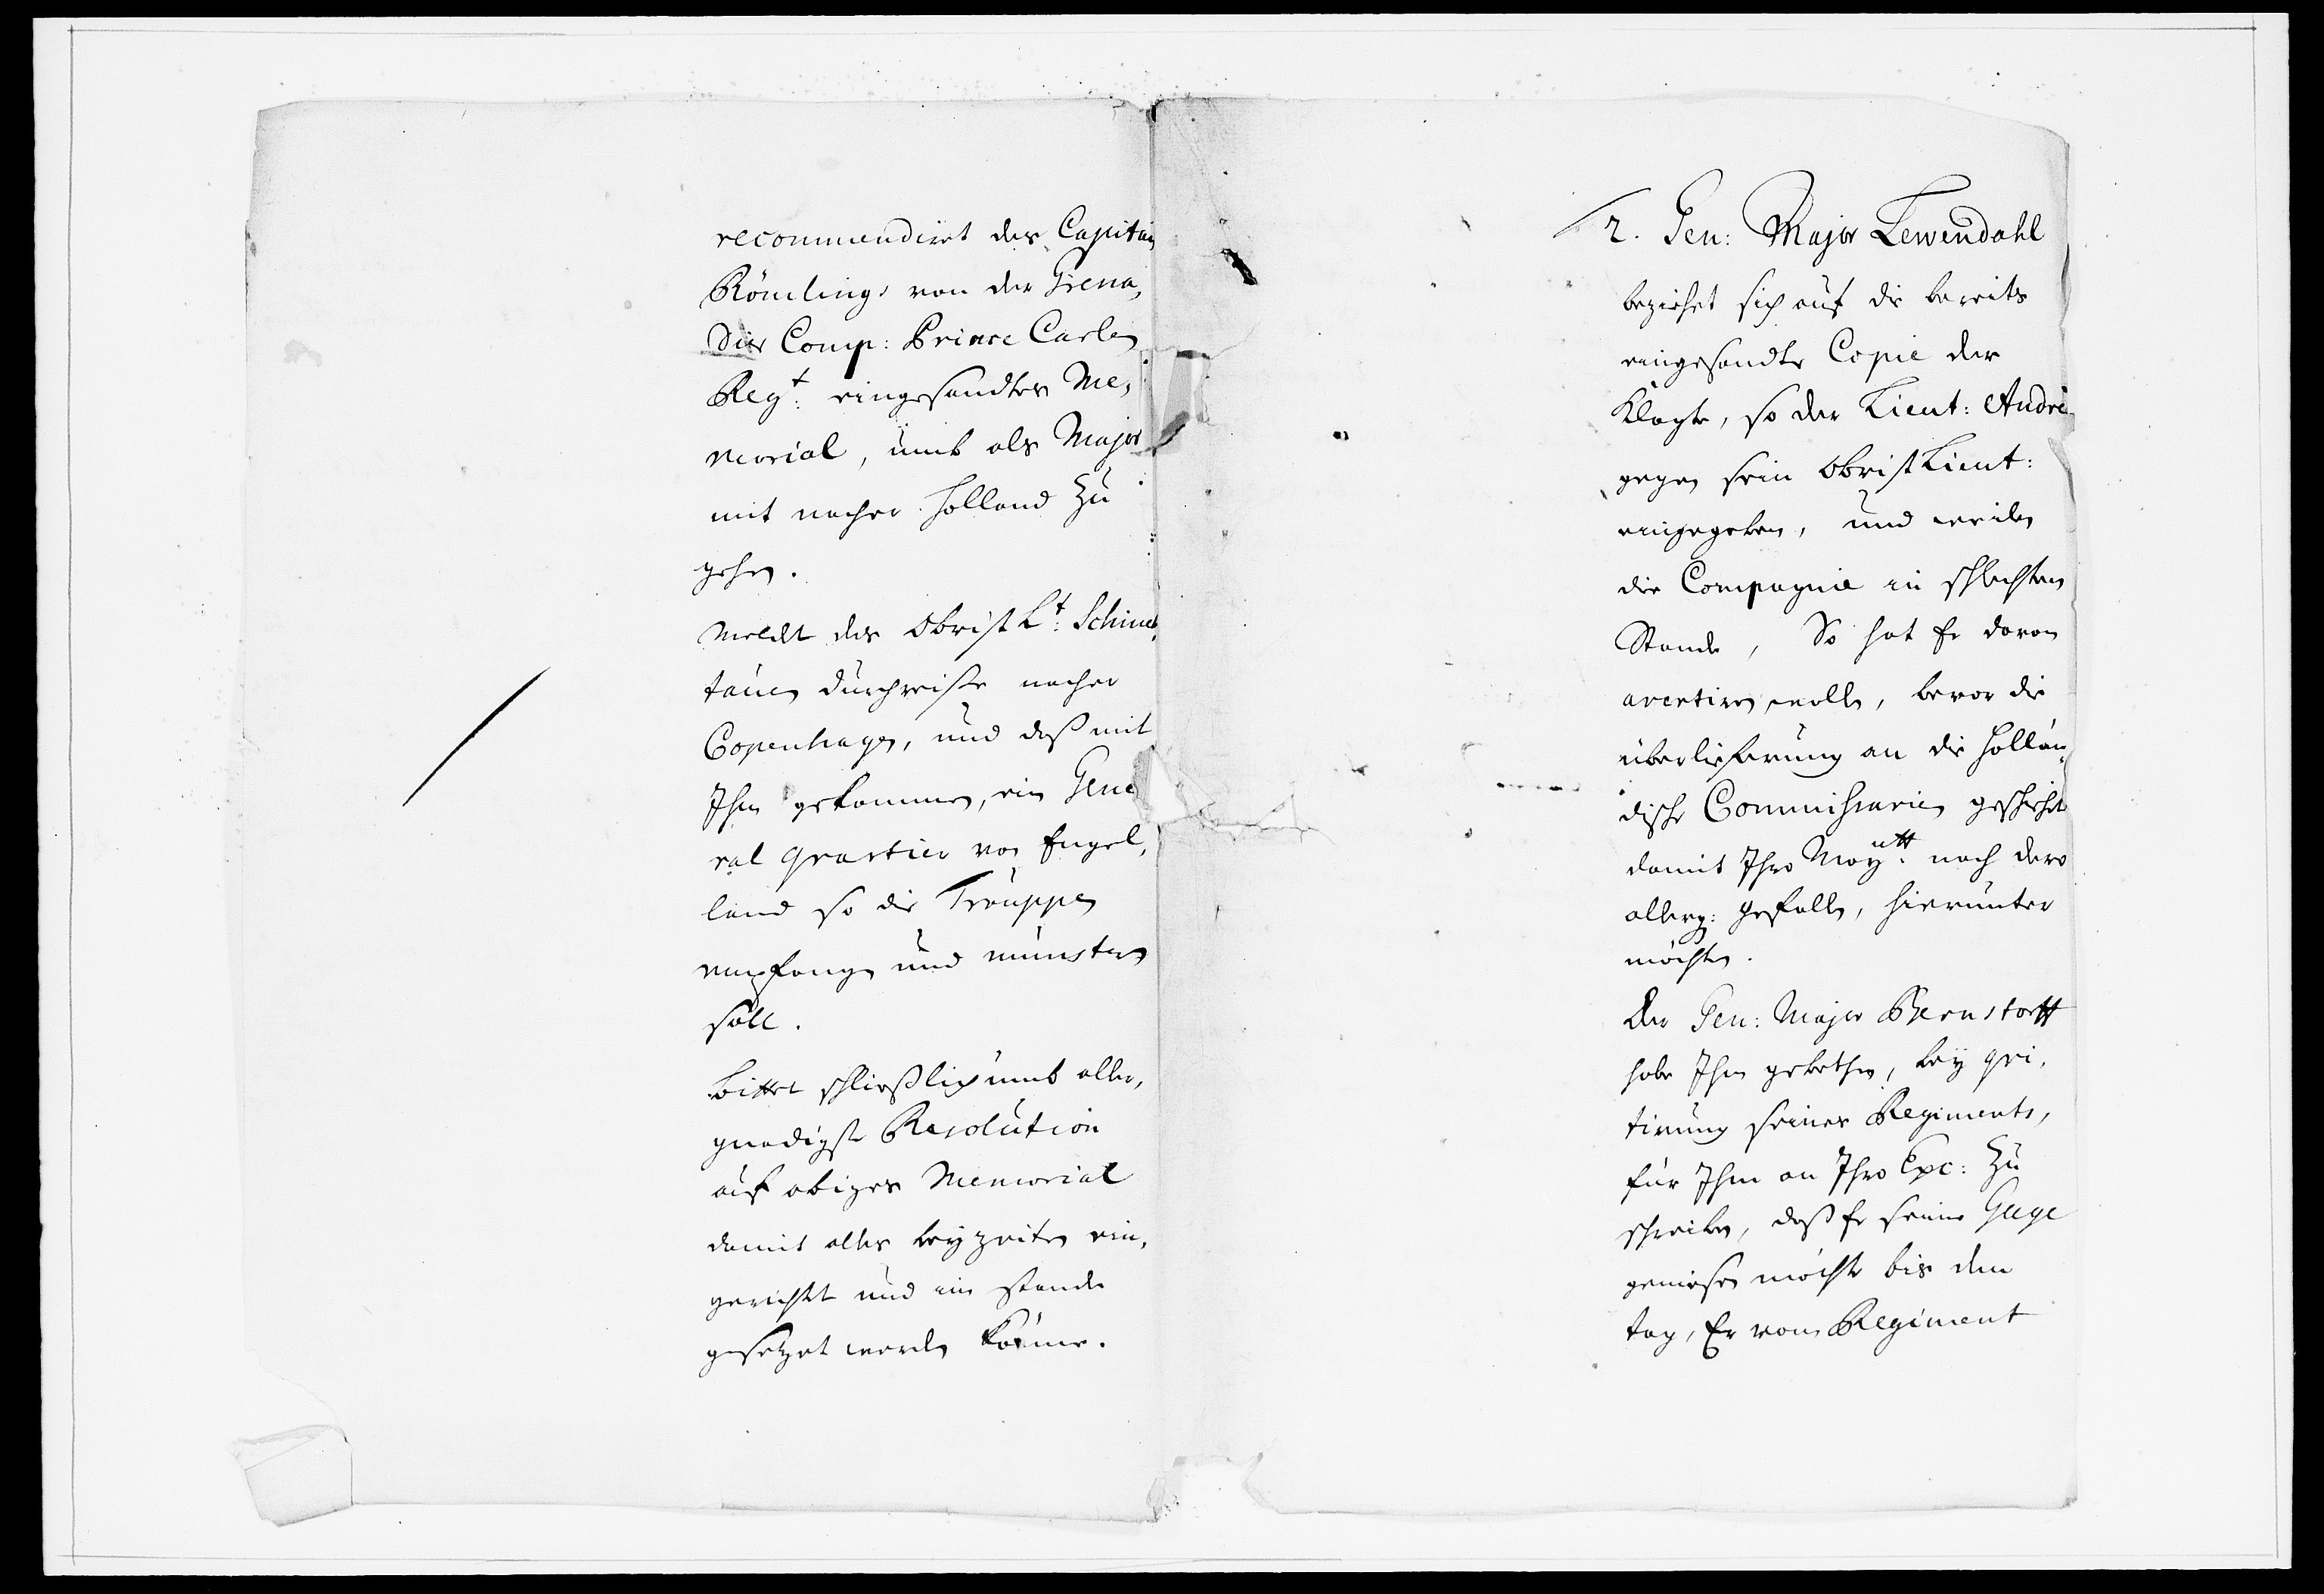 recommendiret des Capitain
Römlings von der Grena,
dier Comp: Prince Carlen
Regt: eingesandtes Me,
morial, umb als Major
mit nacher Holland zu
gehen.
Meldt des Obrist Lt: Schine
tauen durchreise nacher
Copenhagen, und daß mit
Ihm gekommen, ein Gene
ral quartier von Engel,
land so die Trouppen
empfangen und munstern
soll.
bittet schließlich umb aller,
gnädigste Resolution
auf obiges Memorial
damit alles bey zeiten ein,
gerichtet und im stande
gesetzet werden könne.
2. Gen: Major Lewendahl
beziehet sich auf die bereits
eingesandte Copie der
Klagte, so der Lieut: André
gegen sein Obrist Lieut:
eingegeben, und weilen
die Compagnie in schlechten
Stande, So hat Er davon
avertiren wollen, bevor die
überlieferung an die Hollän,
dische Commissarien geschiehet
damit Ihro Maytt: nach dero
allerg: gefallen, hierunter
möchten.
Der Gen: Major Bernstorff
habe Ihm gebethen, bey qvi,
tirung seines Regiments,
für Ihm an Ihro Exc: zu
schreiben, daß Er seine Gage
geniesen möchte bis dem
tag, Er vom Regiment